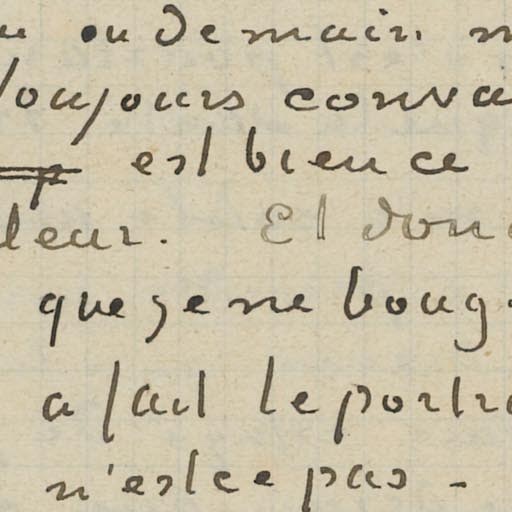 ou demain
toujours conva
est bien ce
leur. Et don
que je ne boug
a fait le portra
n'est ce pas -